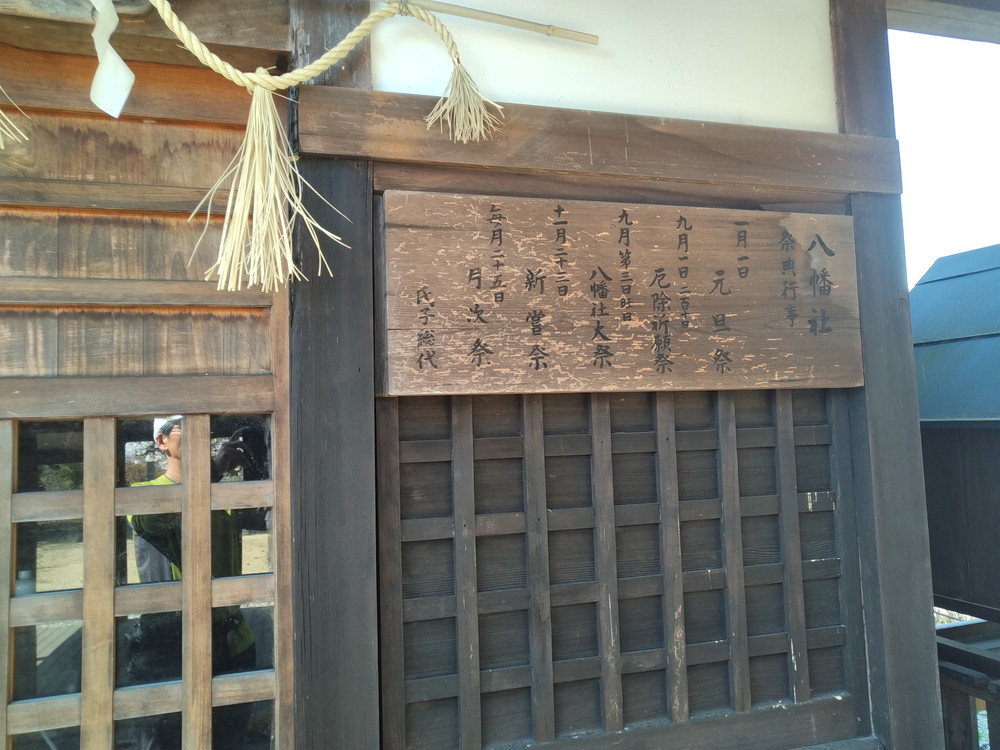 八幡社
祭典行事
一月一日
元旦祭
九月一日 二百十日
厄除祈願祭
九月第三日曜日
八幡社大祭
十一月二十三日
新嘗祭
毎月二十五日
月次祭
氏子総代